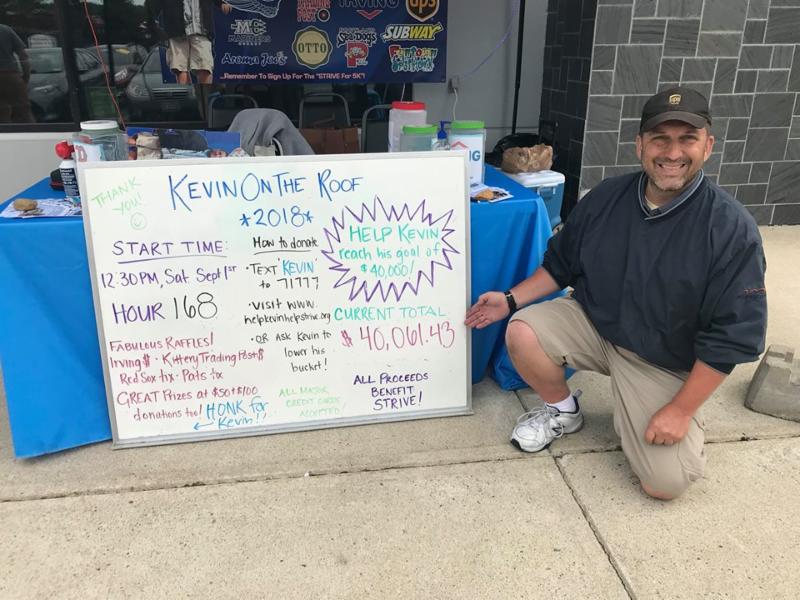 TRADING
POST
IRVING
ups
OTTO
Sea Dogs
SUBWAY
Aroma Joe's
FUNTOWN
...Remember To Sign Up For The "STRIVE For 5K"!
ups
THANK
YOU!
KEVIN ON THE ROOF
*2018*
START TIME:
12:30PM, SAT. SEPT 1st
HOUR 168
FABULOUS RAFFLES!
Irving $ · Kittery Trading Post $
Red Sox tix · Pats tix
GREAT Prizes at $50 + $100
donations too!
HONK for
Kevin!!
How to donate
· TEXT 'KEVIN'
to 71777
· VISIT WWW.
helpkevinhelpstrive.org
· OR ASK Kevin to
lower his
bucket!
ALL MAJOR
CREDIT CARDS
ACCEPTED!
HELP KEVIN
reach his goal of
$40,000!
CURRENT TOTAL
$ 40,061.43
ALL PROCEEDS
BENEFIT
STRIVE!